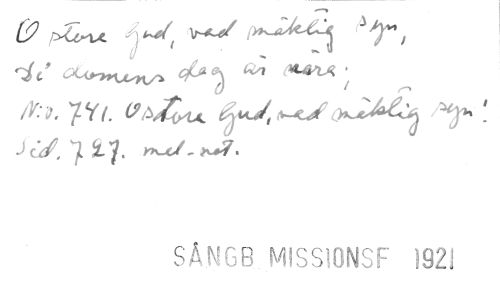 O store Gud, vad mäktig syn,
Di domens dag är nära;
N:o. 741. O store Gud, vad mäktig syn!
Sid. 727. mel-not.
SÅNGB MISSIONSF 1921